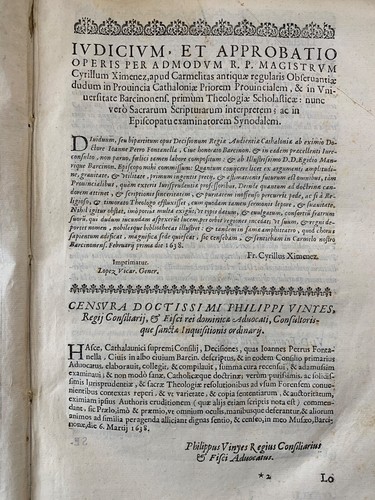 IVDICIVM, ET APPROBATIO
OPERIS PER ADMODVM R. P. MAGISTRVM
Cyrillum Ximenez, apud Carmelitas antiquæ regularis Obseruantiæ
dudum in Prouincia Cathaloniæ Priorem Prouincialem, & in Vni-
uersitate Barcinonens. primùm Theologiæ Scholasticæ: nunc
verò Sacrarum Scripturarum interpretem; ac in
Episcopatu examinatorem Synodalem.
seu bipartitum opus Decisionum Regiæ Audientiæ Cathaloniæ ab eximio
Doctore Ioanne Petro Fontanella, Ciue honorato Barcinon. & in eadem præcellenti Iure-
consulto, non paruo, fœlici tamen labore compositum: & ab Illustrissimo D.D. Egidio Manr-
ique Barcinon. Episcopo mihi commissum: Quantum conijcere licet ex argumenti amplitudine,
grauitate, & vtilitate, primum ingentis pretij, & æstimationis futurum est omnibus, tam
Prouincialibus, quàm exteris Iurisprudentiæ professoribus. Deinde quantum ad doctrinam
attinet, & scriptionis sinceritatem, & puritatem inoffenso percurri pede, ac si à Re-
ligioso, & timorato Theologo effluxisset, cum quodam tamen sermonis lepore, & suauitate.
Nihil igitur obstat, imò potius multa exigit, vt typis datum, & euulgatum, confertis fratrum
suorū, qui dudum iucundam asperxere lucem, per orbē ingentes incedat, vt suum, & regni de-
portet nomen, nobilesque bibliothecas illustret: & tandem in famæ amphitheatro, quod chorus
sapientum ædificat, magnifica sede quiescat, sic censebam, & sentiebam in Carmelo nostro
Barcinonensi. Februarij prima die 1638.
Fr. Cyrillus Ximenez.
Imprimatur.
Lopez Vicar. Gener.
CENSVRA DOCTISSIMI PHILIPPI VINYES,
Regij Consiliarij, & Fisci rei dominicæ Aduocati, Consultoris-
que sanctæ Inquisitionis ordinarij.
HAsce Cathalaunici supremi Consilij, Decisiones, quas Ioannes Petrus Fonta-
nella, Ciuis in albo ciuium Barcin. descriptus, & in eodem Consilio primarius
Aduocatus, elaborauit, collegit, & compilauit, summa cura recensui, & adamussim
examinaui; & non modò sanæ, Catholicæque doctrinæ: verùm quissimis, ac solidis-
simis Iurisprudentiæ, & sacræ Theologiæ resolutionibus ad vsum Forensem conue-
nientibus contextas reperi, & vt varietate, & copia sententiarum, & auctoritatum,
eximiam ipsius Authoris eruditionem (quæ alijs etiam scriptis nota est) commen-
dant, sic Prælo, imò & præmio, vt omnium oculis, manibusque deferantur, & aliorum
animos ad similia peragenda alliciant dignas sentio, & censeo, in meo Musæo, Barci-
nonæ, die 6. Martij 1638.
Philippus Vinyes Regius Consiliarius
& Fisci Aduocatus.
*2
Io